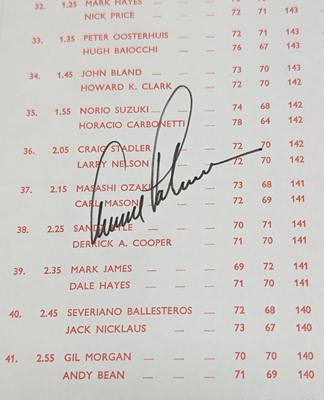 32. 1.25 MARK HAYES 72 71 143
NICK PRICE 72 71 143
33. 1.35 PETER OOSTERHUIS 73 70 143
HUGH BAIOCCHI 76 67 143
34. 1.45 JOHN BLAND 73 70 143
HOWARD K. CLARK 72 70 142
35. 1.55 NORIO SUZUKI 74 68 142
HORACIO CARBONETTI 78 64 142
36. 2.05 CRAIG STADLER 72 70 142
LARRY NELSON 72 70 142
37. 2.15 MASASHI OZAKI 73 68 141
CARL MASON 72 69 141
38. 2.25 SANDY LYLE 70 71 141
DERRICK A. COOPER 71 70 141
39. 2.35 MARK JAMES 69 72 141
DALE HAYES 71 70 141
40. 2.45 SEVERIANO BALLESTEROS 72 68 140
JACK NICKLAUS 73 67 140
41. 2.55 GIL MORGAN 70 70 140
ANDY BEAN 71 69 140
Arnold Palmer